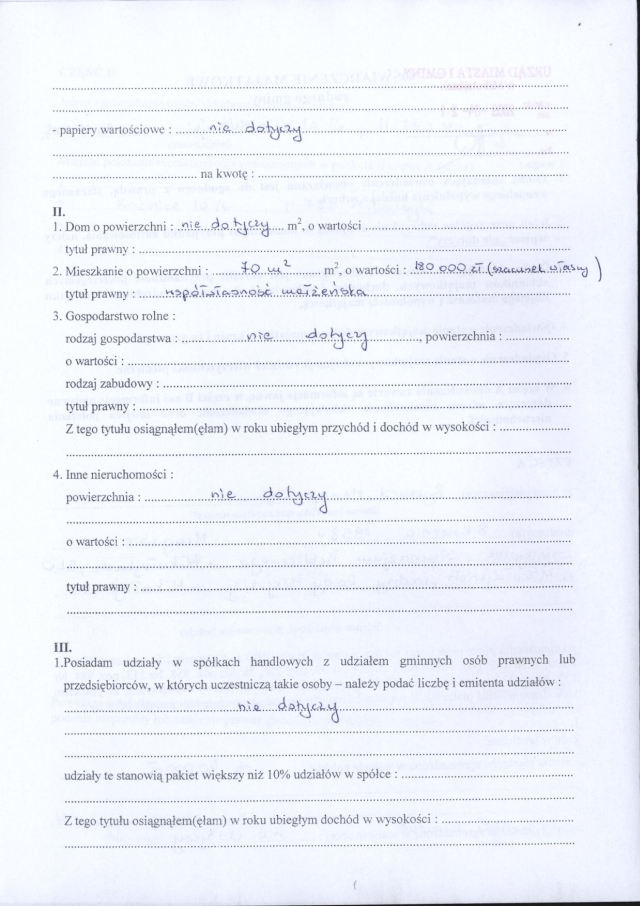 - papiery wartościowe : ..........nie....dotyczy..........
.......... na kwotę : ..........
II.
1. Dom o powierzchni : ..nie...dotyczy..... m², o wartości ..........
tytuł prawny : ..........
2. Mieszkanie o powierzchni : ........70 m²........ m², o wartości : ..180 000 zł (szacunek własny)
tytuł prawny : ........współwłasność małżeńska..........
3. Gospodarstwo rolne :
rodzaj gospodarstwa : ..........nie..........dotyczy.........., powierzchnia : ..........
o wartości : ..........
rodzaj zabudowy : ..........
tytuł prawny : ..........
Z tego tytułu osiągnąłem(ęłam) w roku ubiegłym przychód i dochód w wysokości : ..........
4. Inne nieruchomości :
powierzchnia : ..........nie......dotyczy..........
o wartości : ..........
tytuł prawny : ..........
III.
1.Posiadam udziały w spółkach handlowych z udziałem gminnych osób prawnych lub
przedsiębiorców, w których uczestniczą takie osoby – należy podać liczbę i emitenta udziałów :
..........nie....dotyczy..........
udziały te stanowią pakiet większy niż 10% udziałów w spółce : ..........
Z tego tytułu osiągnąłem(ęłam) w roku ubiegłym dochód w wysokości : ..........